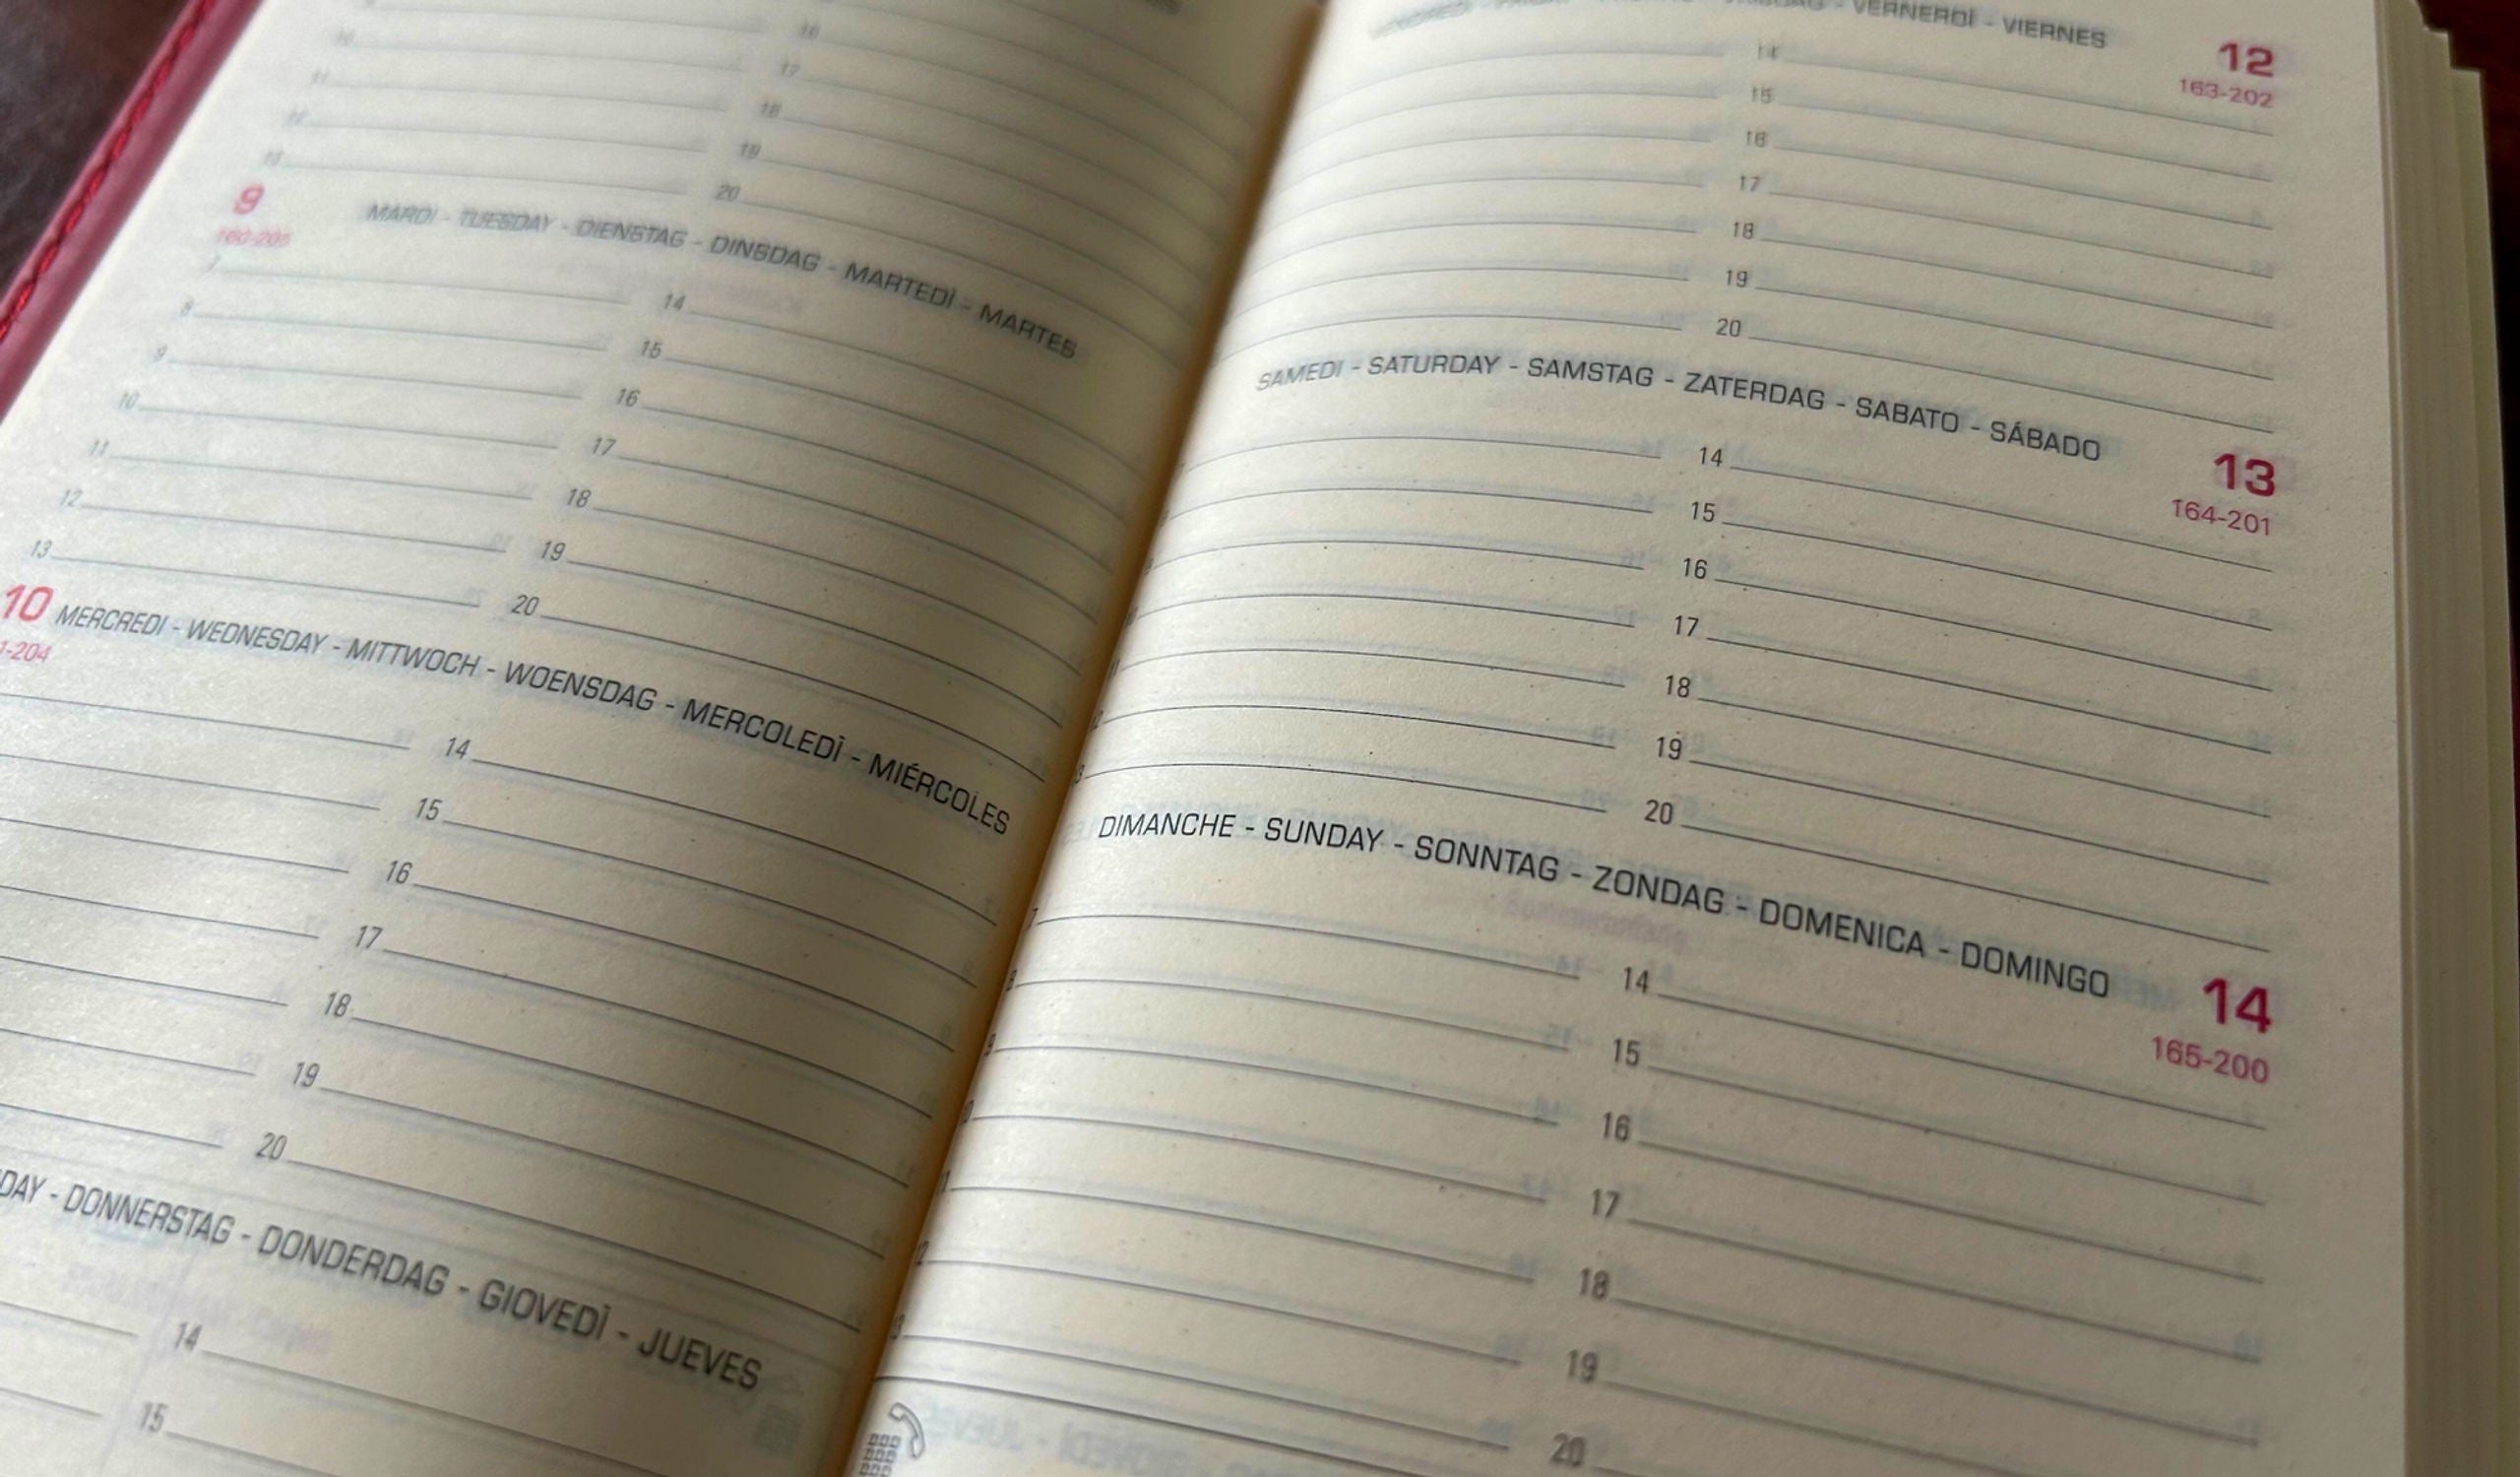 16
17
18
19
20
9
MARDI - TUESDAY - DIENSTAG - DINSDAG - MARTEDÌ - MARTES
160-205
7
14
8
15
9
16
10
17
11
18
12
19
13
20
10 MERCREDI - WEDNESDAY - MITTWOCH - WOENSDAG - MERCOLEDÌ - MIÉRCOLES
-204
14
15
16
17
18
19
20
DAY - DONNERSTAG - DONDERDAG - GIOVEDÌ - JUEVES
14
15
VERNERDÌ - VIERNES
12
163-202
14
15
16
17
18
19
20
SAMEDI - SATURDAY - SAMSTAG - ZATERDAG - SABATO - SÁBADO
13
164-201
14
15
16
17
18
19
20
DIMANCHE - SUNDAY - SONNTAG - ZONDAG - DOMENICA - DOMINGO
14
165-200
7
14
8
15
9
16
17
18
19
20